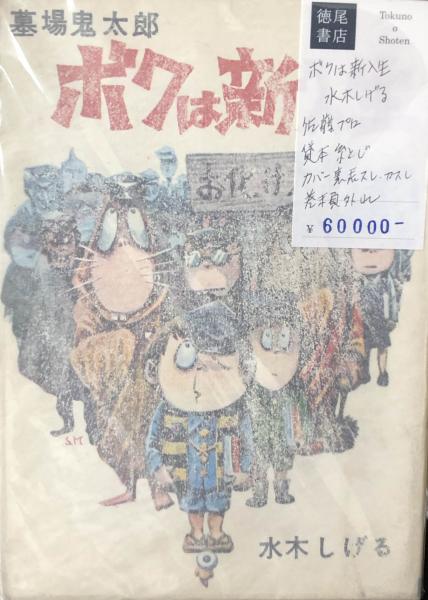 墓場鬼太郎
ボクは新
水木しげる
徳尾
書店
Tokuno
o
Shoten
ボクは新入生
水木しげる
佐藤プロ
貸本 糸とじ
カバー裏表スレ・カスレ
巻末頁外レ
¥ 60000-
S.M